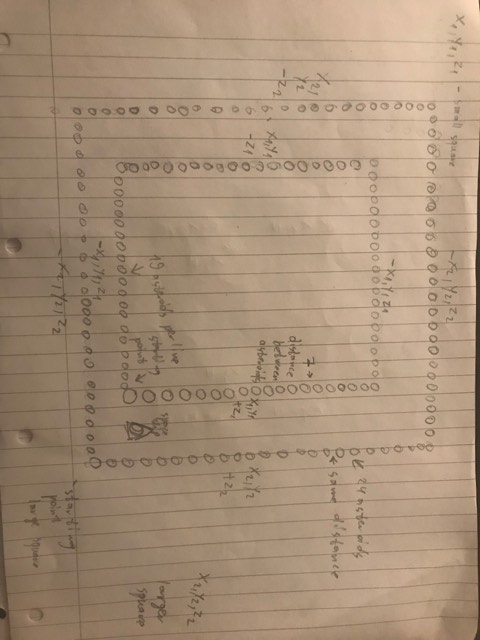 x1, y1, z1 - small square
-x2, y2, z2
-x1, y1, z1
24 asteroids
same distance
x2,
y2
-z2
7
distance
between
asteroids
x1, y1
-z1
x1, y1
+z1
x2, y2
+z2
x2, y2, z2
larger
square
19 asteroids per line
starting
point
space
-x1, y1, z1
-x2, y2, z2
starting
point
large square